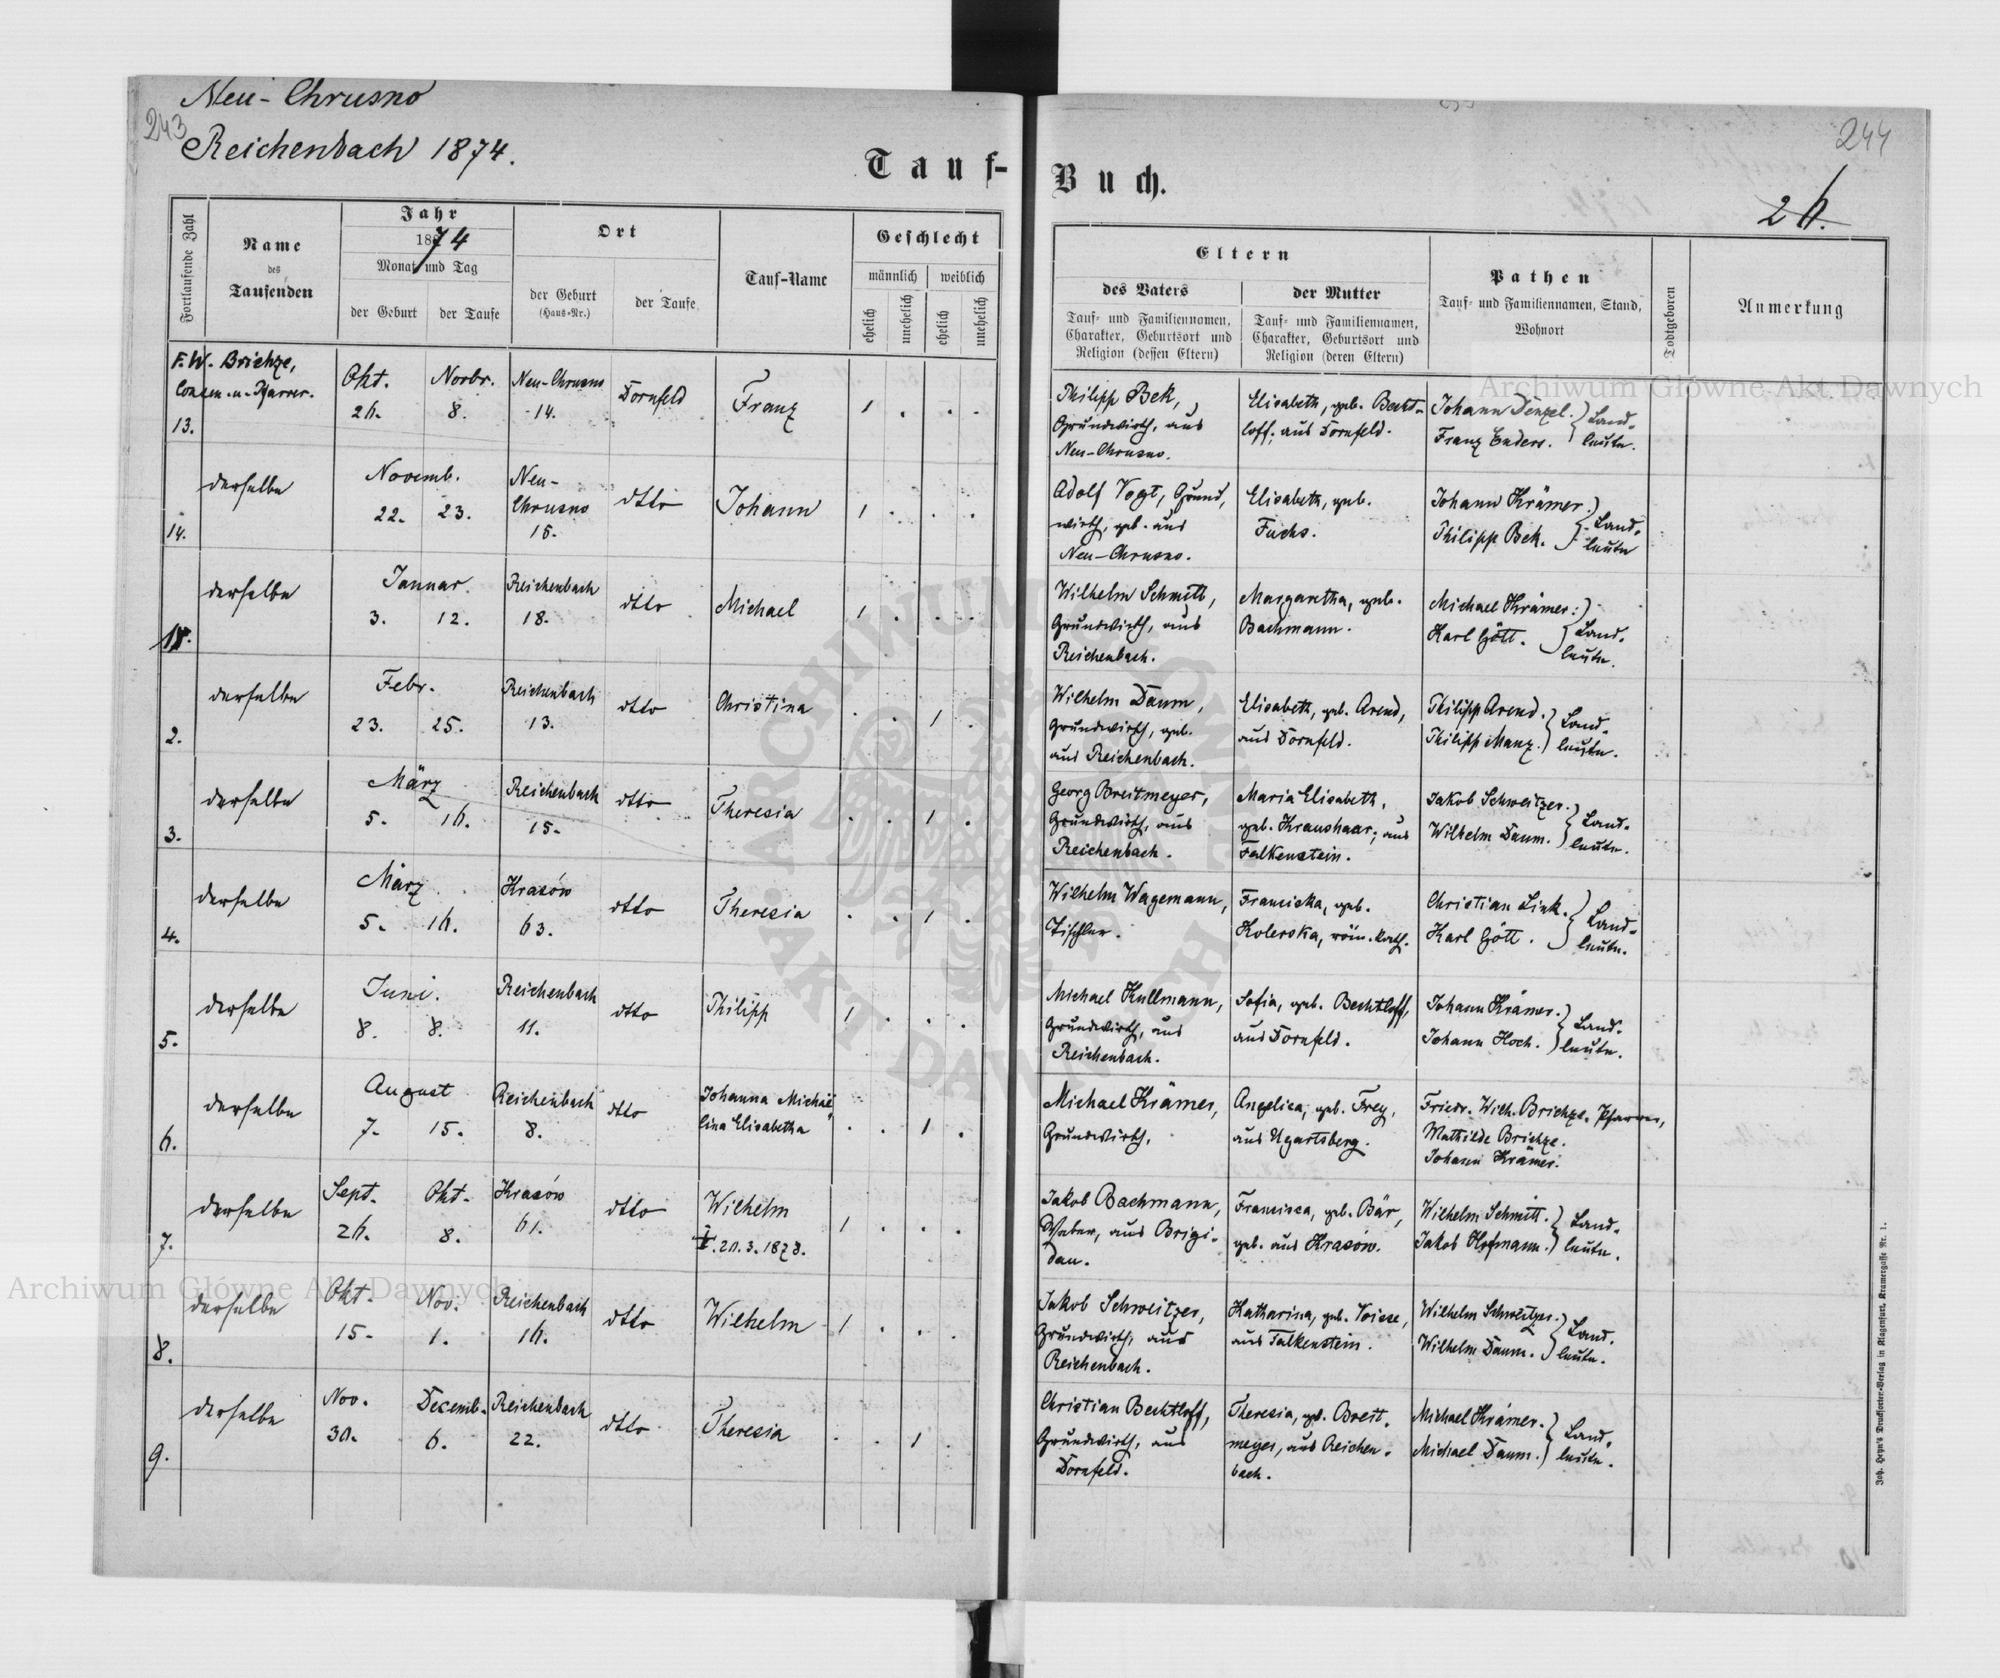 Neu-Chrusno
243
Reichenbach 1874.
Tauf-
Buch.
244
26.
Fortlaufende Zahl
Name
des
Taufenden
Jahr
1874
Monat und Tag
der Geburt
der Taufe
Ort
der Geburt
(Haus-Nr.)
der Taufe
Tauf-Name
Geschlecht
männlich
weiblich
ehelich
unehelich
ehelich
unehelich
Eltern
des Vaters
Tauf- und Familiennamen,
Charakter, Geburtsort und
Religion (dessen Eltern)
der Mutter
Tauf- und Familiennamen,
Charakter, Geburtsort und
Religion (deren Eltern)
Pathen
Tauf- und Familiennamen, Stand,
Wohnort
Todtgeboren
Anmerkung
F. W. Brichze,
Consen. u. Pfarrer.
13.
Okt.
26.
Novbr.
8.
Neu-Chrusno
14.
Dornfeld
Franz
1 . . .
Philipp Bek,
Grundwirth, aus
Neu-Chrusno.
Elisabeth, geb. Becht-
loff, aus Dornfeld.
Johann Denzel.
Franz Enders.
Land-
leute.
14.
derselbe
Novemb.
22. 23.
Neu-
Chrusno
15.
dtto
Johann
1 . . .
Adolf Vogt, Grund,
wirth, geb. aus
Neu-Chrusno.
Elisabeth, geb.
Fuchs.
Johann Krämer.
Philipp Bek.
Land-
leute
1.
derselbe
Januar.
3. 12.
Reichenbach
18.
dtto
Michael
1 . . .
Wilhelm Schmitt,
Grundwirth, aus
Reichenbach.
Margaretha, geb.
Bachmann.
Michael Krämer.
Karl Gött.
Land-
leute.
2.
derselbe
Febr.
23. 25.
Reichenbach
13.
dtto
Christina
. . 1 .
Wilhelm Daum,
Grundwirth, geb.
aus Reichenbach.
Elisabeth, geb. Arend,
aus Dornfeld.
Philipp Arend.
Philipp Manz.
Land-
leute.
3.
derselbe
März
5. 16.
Reichenbach
15.
dtto
Theresia
. . 1 .
Georg Breitmeyer,
Grundwirth, aus
Reichenbach.
Maria Elisabeth,
geb. Kraushaar, aus
Falkenstein.
Jakob Schweitzer.
Wilhelm Daum.
Land-
leute.
4.
derselbe
März
5. 16.
Krasów
63.
dtto
Theresia
. . 1 .
Wilhelm Wagemann,
Tischler.
Franciska, geb.
Kolerska, röm. kath.
Christian Link.
Karl Gött.
Land-
leute.
5.
derselbe
Juni.
8. 8.
Reichenbach
11.
dtto
Philipp
1 . . .
Michael Kullmann,
Grundwirth, aus
Reichenbach.
Sofia, geb. Bechtloff,
aus Dornfeld.
Johann Krämer.
Johann Hoch.
Land-
leute.
6.
derselbe
August
7. 15.
Reichenbach
8.
dtto
Johanna Michae
lina Elisabetha
. . 1 .
Michael Krämer,
Grundwirth,
Angelica, geb. Frey,
aus Ugartsberg.
Friedr. Wilh. Brichze, Pfarrer,
Mathilde Brichze.
Johann Krämer.
7.
derselbe
Sept.
26.
Okt.
8.
Krasów
61.
dtto
Wilhelm
†. 20. 3. 1878.
1 . . .
Jakob Bachmann,
Weber, aus Brigi-
dau.
Francisca, geb. Bär,
geb. aus Krasów.
Wilhelm Schmitt.
Jakob Hofmann.
Land-
leute.
8.
derselbe
Okt.
15.
Nov.
1.
Reichenbach
16.
dtto
Wilhelm
1 . . .
Jakob Schweitzer,
Grundwirth, aus
Reichenbach.
Katharina, geb. Voisse,
aus Falkenstein.
Wilhelm Schweitzer.
Wilhelm Daum.
Land-
leute.
9.
derselbe
Nov.
30.
Decemb.
6.
Reichenbach
22.
dtto
Theresia
. . 1 .
Christian Bechtloff,
Grundwirth, aus
Dornfeld.
Theresia, geb. Breit-
meyer, aus Reichen-
bach.
Michael Krämer.
Michael Daum.
Land-
leute.
Joh. Heyn's Drucksorten-Verlag in Klagenfurt, Kramergasse Nr. 1.
Archiwum Główne Akt Dawnych
Archiwum Główne Akt Dawnych
ARCHIWUM GŁÓWNE AKT DAWNYCH